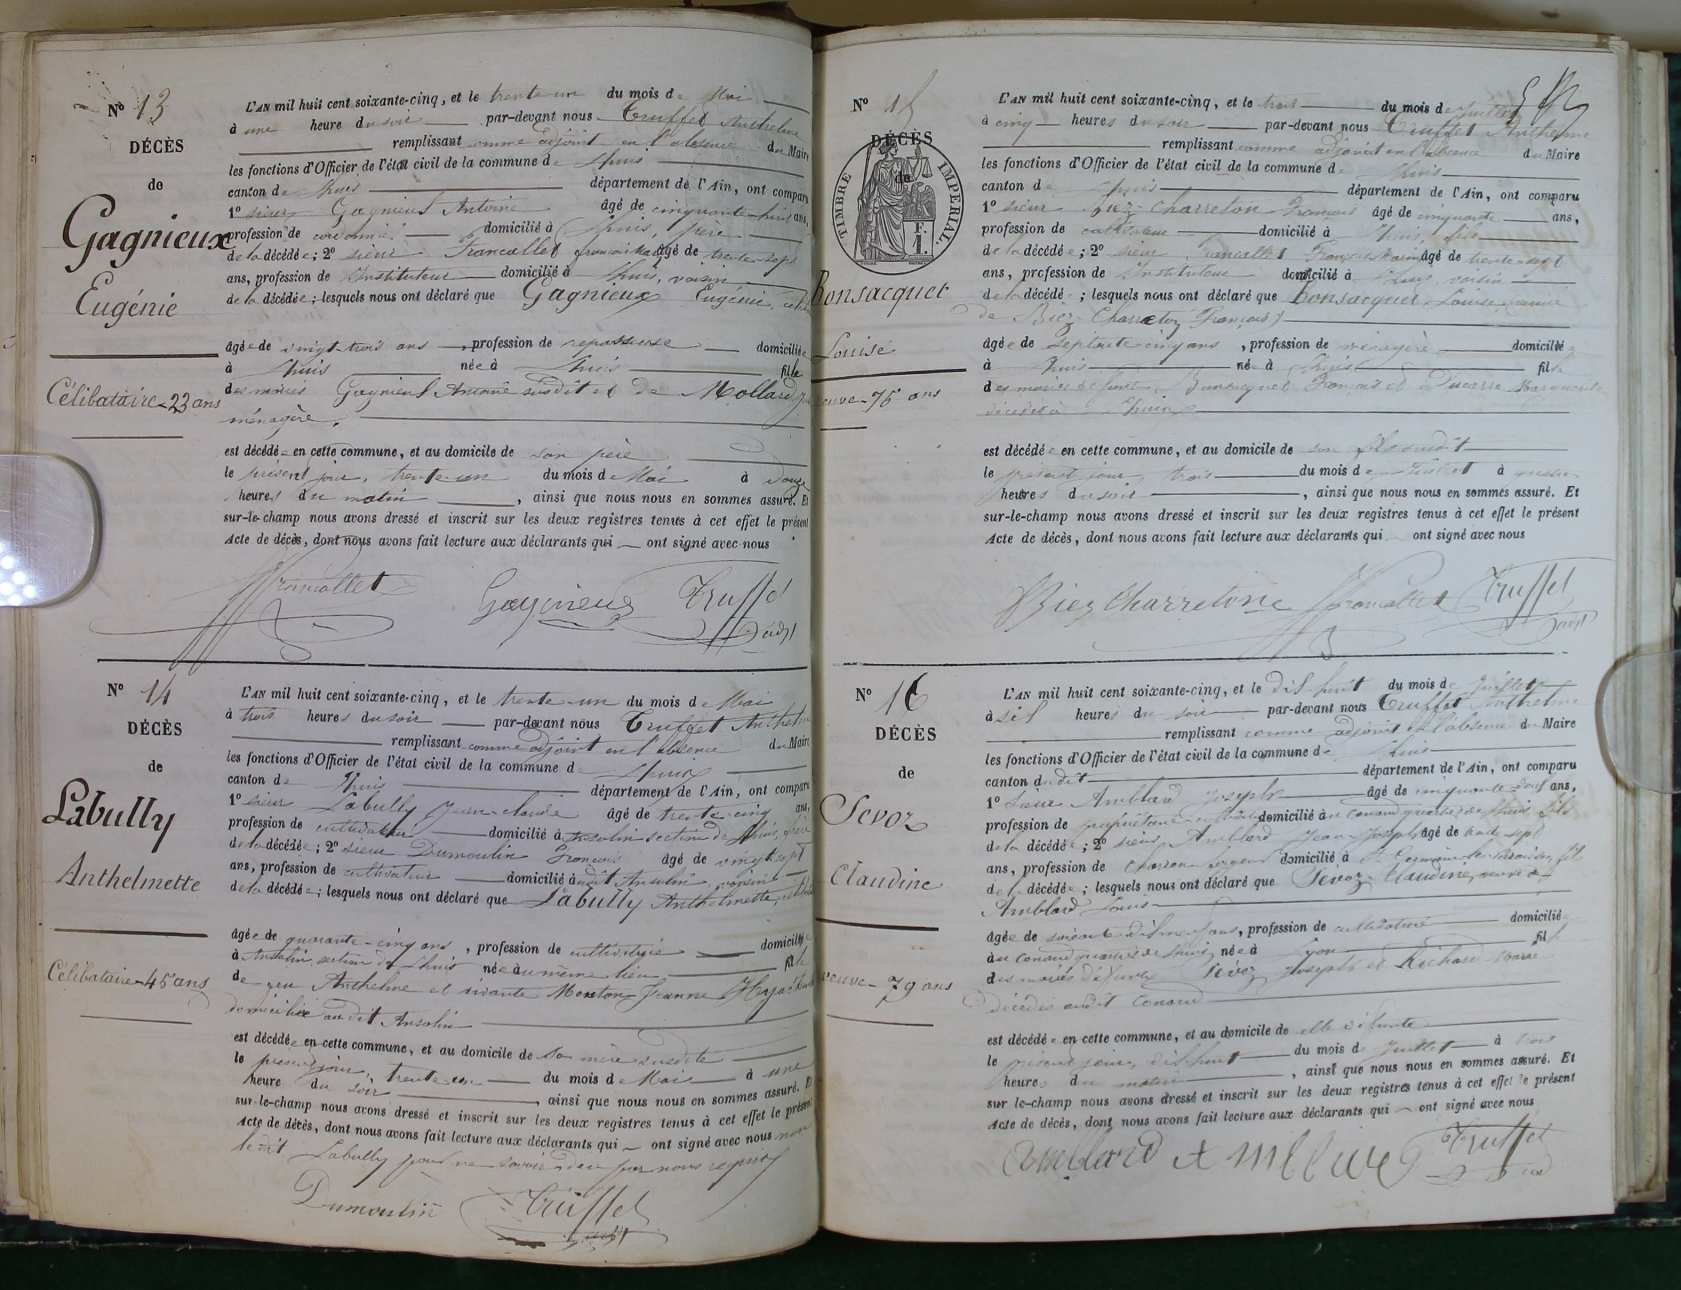 Nº 13
DÉCÈS
de
Gagnieux
Eugénie
Célibataire - 23 ans
L'AN mil huit cent soixante-cinq, et le trente-un du mois de Mai
à une heure du soir par-devant nous Truffet Anthelme
remplissant comme adjoint en l'absence du Maire
les fonctions d'Officier de l'état civil de la commune de Lhuis
canton de Lhuis département de l'Ain, ont comparu
1º sieur Gagnieux Antoine âgé de cinquante-huit ans,
profession de domicilié à Lhuis, père
de la décédée; 2º sieur Francallet âgé de trente-sept
ans, profession de Instituteur domicilié à Lhuis, voisin
de la décédée; lesquels nous ont déclaré que Gagnieux Eugénie,
âgée de vingt-trois ans, profession de repasseuse domiciliée
à Lhuis née à Lhuis fille
des mariés Gagnieux Antoine susdit et de Mollard
ménagère.
est décédée en cette commune, et au domicile de son père
le présent jour, trente-un du mois de Mai à douze
heures du matin, ainsi que nous nous en sommes assuré. Et
sur-le-champ nous avons dressé et inscrit sur les deux registres tenus à cet effet le présent
Acte de décès, dont nous avons fait lecture aux déclarants qui ont signé avec nous
Francallet Gagnieux Truffet
adjt
Nº 14
DÉCÈS
de
Labully
Anthelmette
Célibataire - 45 ans
L'AN mil huit cent soixante-cinq, et le trente-un du mois de Mai
à trois heures du soir par-devant nous Truffet Anthelme
remplissant comme adjoint en l'absence du Maire
les fonctions d'Officier de l'état civil de la commune de Lhuis
canton de Lhuis département de l'Ain, ont comparu
1º sieur Labully Jean-Claude âgé de trente-cinq ans,
profession de cultivateur domicilié à Ansolin section de Lhuis, frère
de la décédée; 2º sieur Dumoulin François âgé de vingt-sept
ans, profession de cultivateur domicilié audit Ansolin, voisin
de la décédée; lesquels nous ont déclaré que Labully Anthelmette,
âgée de quarante-cinq ans, profession de cultivatrice domiciliée
à Ansolin section de Lhuis née au même lieu fille
de feu Anthelme et vivante Monton Jeanne
domiciliée audit Ansolin
est décédée en cette commune, et au domicile de sa mère susdite
le présent jour, trente-un du mois de Mai à une
heure du soir, ainsi que nous nous en sommes assuré. Et
sur-le-champ nous avons dressé et inscrit sur les deux registres tenus à cet effet le présent
Acte de décès, dont nous avons fait lecture aux déclarants qui ont signé avec nous non
ledit Labully pour ne savoir de ce par nous requis
Dumoulin Truffet
adjt
Nº 15
DÉCÈS
de
TIMBRE IMPÉRIAL
F.
1.
Bonsacquet
Louise
veuve - 75 ans
L'AN mil huit cent soixante-cinq, et le trois du mois de Juillet
à cinq heures du soir par-devant nous Truffet Anthelme
remplissant comme adjoint en l'absence du Maire
les fonctions d'Officier de l'état civil de la commune de Lhuis
canton de Lhuis département de l'Ain, ont comparu
1º sieur Biez-Charreton François âgé de cinquante ans,
profession de cultivateur domicilié à Lhuis, fils
de la décédée; 2º sieur Francallet âgé de trente-sept
ans, profession de Instituteur domicilié à Lhuis, voisin
de la décédée; lesquels nous ont déclaré que Bonsacquet Louise, veuve
de Biez-Charreton François
âgée de septante-cinq ans, profession de ménagère domiciliée
à Lhuis née à Lhuis fille
des mariés défunts Bonsacquet François et
décédés à Lhuis
est décédée en cette commune, et au domicile de son fils susdit
le présent jour, trois du mois de Juillet à
heures du soir, ainsi que nous nous en sommes assuré. Et
sur-le-champ nous avons dressé et inscrit sur les deux registres tenus à cet effet le présent
Acte de décès, dont nous avons fait lecture aux déclarants qui ont signé avec nous
Biez Charretone Francallet Truffet
adjt
Nº 16
DÉCÈS
de
Sevoz
Claudine
veuve - 79 ans
L'AN mil huit cent soixante-cinq, et le dix-huit du mois de Juillet
à six heures du soir par-devant nous Truffet Anthelme
remplissant comme adjoint en l'absence du Maire
les fonctions d'Officier de l'état civil de la commune de Lhuis
canton dudit département de l'Ain, ont comparu
1º sieur Amblard Joseph âgé de cinquante-neuf ans,
profession de propriétaire domicilié à Conand quartier de Lhuis, fils
de la décédée; 2º sieur Amblard Jean-Joseph âgé de trente-sept
ans, profession de domicilié à St Germain
de la décédée; lesquels nous ont déclaré que Sevoz Claudine, veuve de
Amblard Louis
âgée de soixante-dix-neuf ans, profession de domiciliée
à Conand quartier de Lhuis, née à Lyon fille
des mariés défunts Sevoz Joseph et Richard
décédés audit Conand
est décédée en cette commune, et au domicile de elle défunte
le présent jour, dix-huit du mois de Juillet à trois
heures du matin, ainsi que nous nous en sommes assuré. Et
sur le-champ nous avons dressé et inscrit sur les deux registres tenus à cet effet le présent
Acte de décès, dont nous avons fait lecture aux déclarants qui ont signé avec nous
amblard Truffet